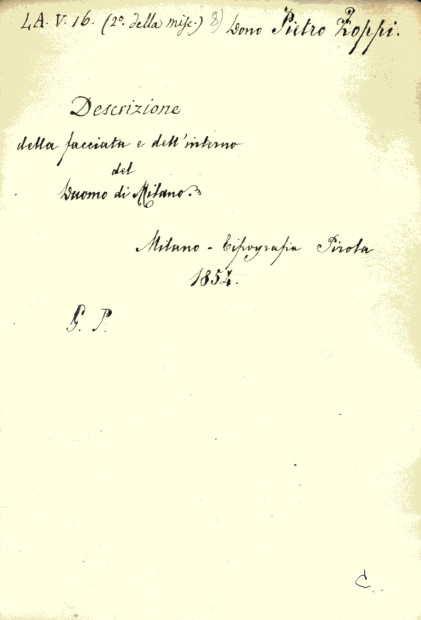 LA. V. 16. (2º. della misc.) 8) Dono Pietro Zoppi.
Descrizione
della facciata e dell'interno
del
Duomo di Milano.
Milano - Tipografia Pirola
1854.
G. P.
C.